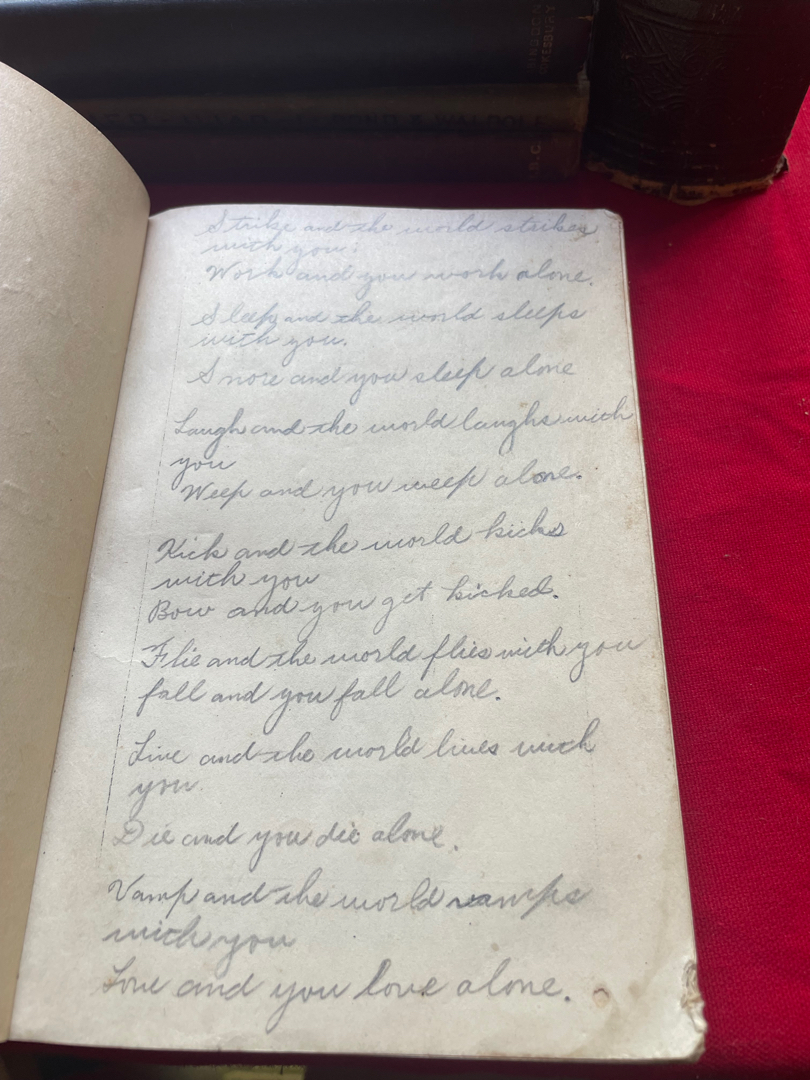 KESBURY
Strike and the world strikes
with you;
Work and you work alone.
Sleep and the world sleeps
with you.
Snore and you sleep alone
Laugh and the world laughs with
you
Weep and you weep alone.
Kick and the world kicks
with you
Bow and you get kicked.
Flie and the world flies with you
fall and you fall alone.
Live and the world lives with
you.
Die and you die alone.
Vamp and the world vamps
with you
Love and you love alone.